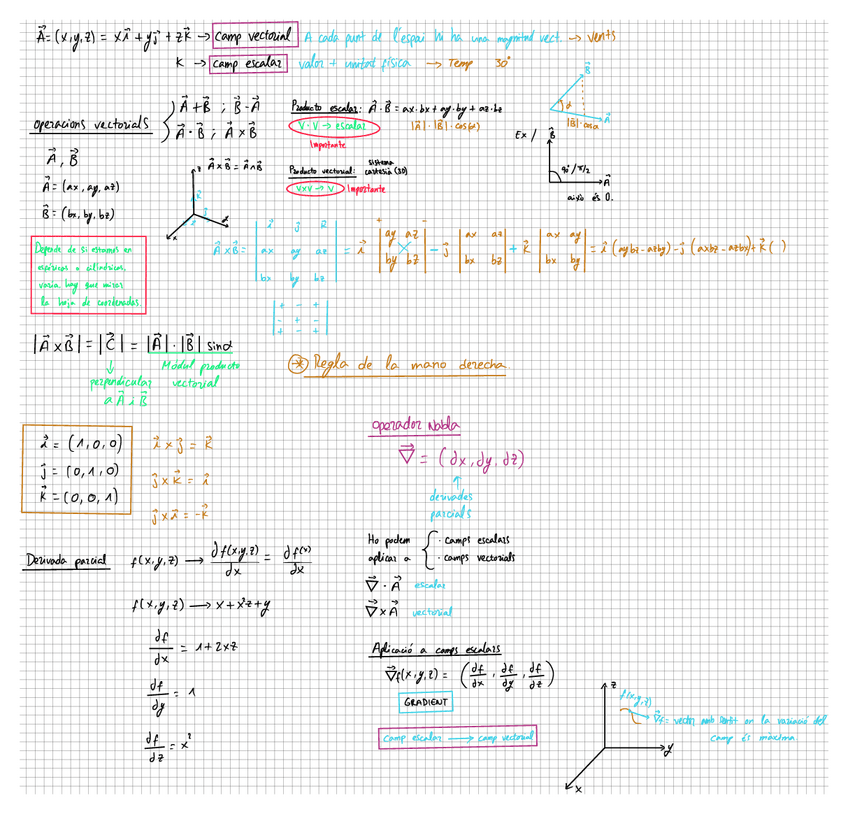 A⃗ = (x,y,z) = xi⃗ + yj⃗ + zk⃗ → camp vectorial A cada punt de l'espai hi ha una magnitud vect. → vents
K → camp escalar valor + unitat física → Temp 30°
operacions vectorials
A⃗ + B⃗ ; B⃗ - A⃗
A⃗ · B⃗ ; A⃗ x B⃗
Producto escalar: A⃗ · B⃗ = ax·bx + ay·by + az·bz
V · V → escalar |A⃗| · |B⃗| · cos(α)
Importante
B⃗
α
A⃗
|B⃗| cosα
A⃗, B⃗
A⃗ = (ax, ay, az)
B⃗ = (bx, by, bz)
z
A⃗ x B⃗ = A⃗ ∧ B⃗
x
Producto vectorial: sistema cartesià (3D)
V x V → V Importante
Ex /
B⃗
90°/π/2
A⃗
això és 0.
Depende de si estamos en
esféricas o cilíndricas,
varía, hay que mirar
la hoja de coordenadas.
A⃗ x B⃗ = | i⃗ j⃗ k⃗ | = i⃗ | ay az | - j⃗ | ax az | + k⃗ | ax ay | = i⃗ (aybz - azby) - j⃗ (axbz - azbx) + k⃗ ( )
| ax ay az | | by bz | | bx bz | | bx by |
| bx by bz |
| + - + |
| - + - |
| + - + |
|A⃗ x B⃗| = |C⃗| = |A⃗| · |B⃗| sinα
Mòdul producto
vectorial
perpendicular
a A⃗ i B⃗
* Regla de la mano derecha.
i⃗ = (1,0,0)
j⃗ = (0,1,0)
k⃗ = (0,0,1)
i⃗ x j⃗ = k⃗
j⃗ x k⃗ = i⃗
j⃗ x i⃗ = -k⃗
Operador Nabla
∇⃗ = (∂x, ∂y, ∂z)
derivades
parcials
Derivada parcial f(x,y,z) → ∂f(x,y,z)/∂x = ∂f(x)/∂x
f(x,y,z) → x + x²z + y
∂f/∂x = 1 + 2xz
∂f/∂y = 1
∂f/∂z = x²
Ho podem
aplicar a
· camps escalars
· camps vectorials
∇⃗ · A⃗ escalar
∇⃗ x A⃗ vectorial
Aplicació a camps escalars
∇⃗f(x,y,z) = (∂f/∂x, ∂f/∂y, ∂f/∂z)
GRADIENT
camp escalar → camp vectorial
z
f(x,y,z)
∇⃗f = vector amb sentit on la variació del
camp és maxima.
y
x